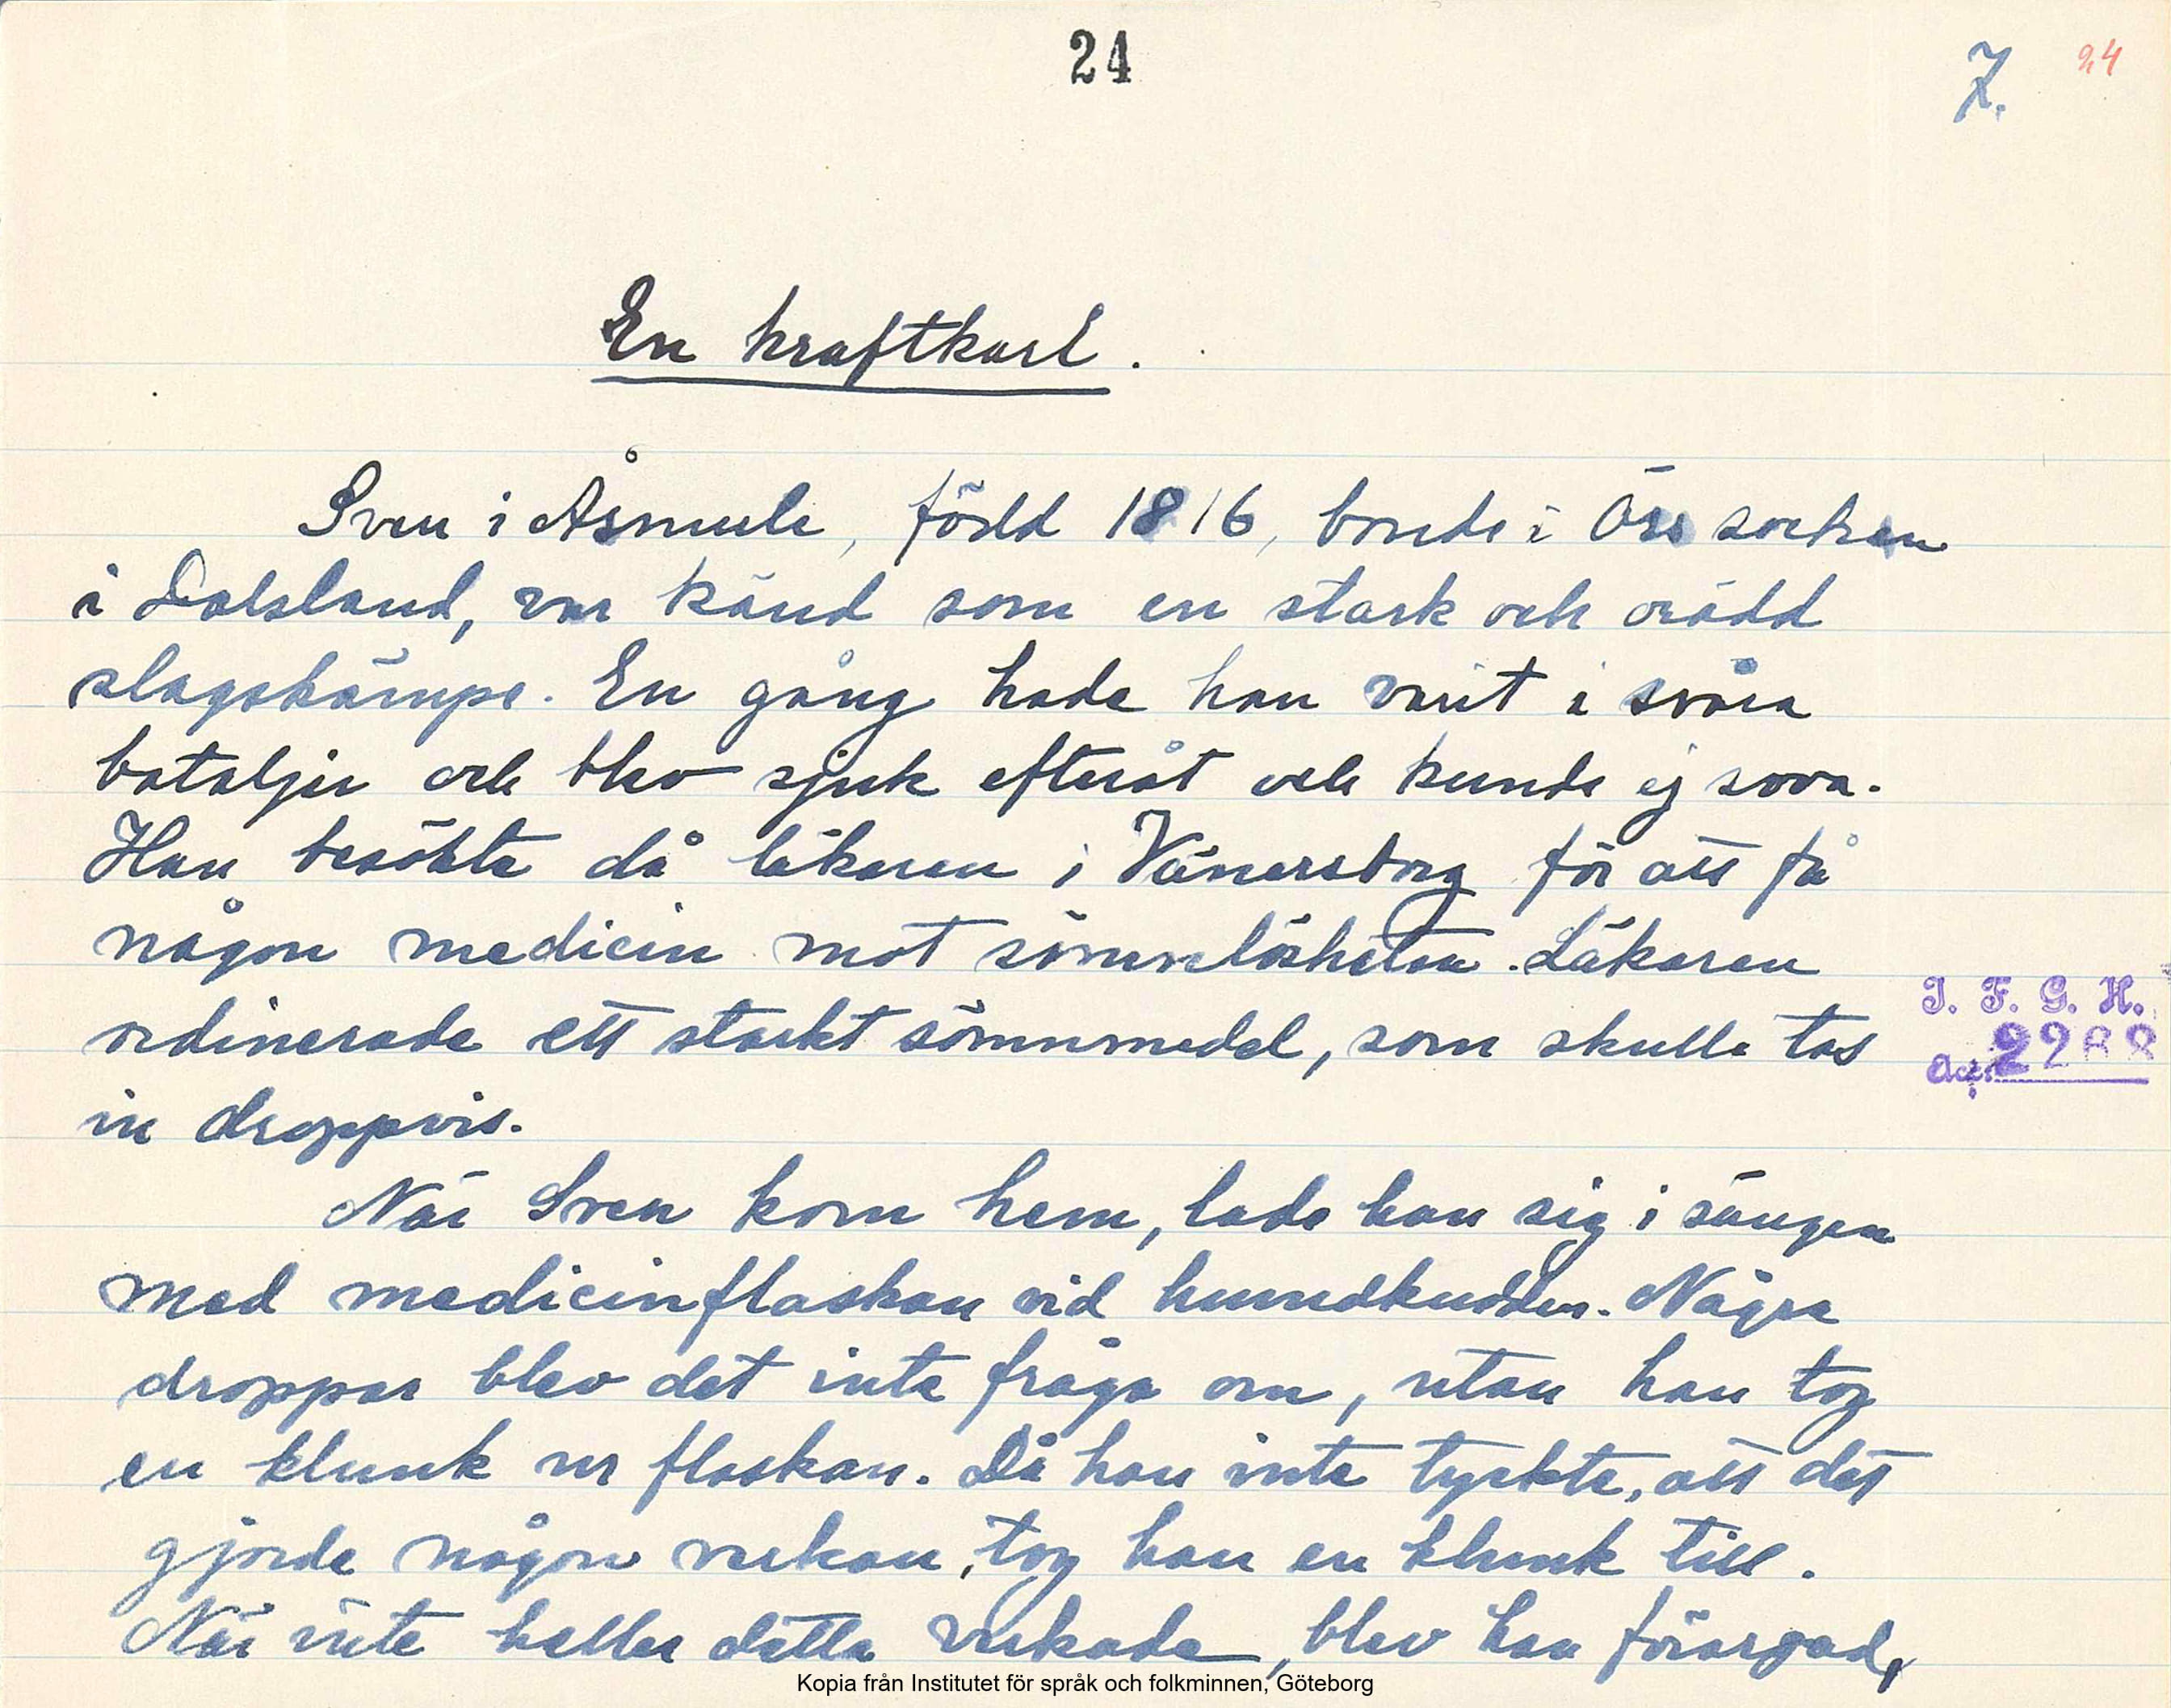 24
7. 24
En kraftkarl.
Sven i Åsmule, född 1816, bonde i Örs socken
i Dalsland, var känd som en stark och orädd
slagskämpe. En gång hade han varit i svåra
bataljer och blev sjuk efteråt och kunde ej sova.
Han besökte då läkaren i Vänersborg för att få
någon medicin mot sömnlösheten. Läkaren
ordinerade ett starkt sömnmedel, som skulle tas
I. F. G. H.
Acc. 2288
in droppvis.
När Sven kom hem, lade han sig i sängen
med medicinflaskan vid huvudkudden. Några
droppar blev det inte fråga om, utan han tog
en klunk ur flaskan. Då han inte tyckte, att det
gjorde någon verkan, tog han en klunk till.
När inte heller detta verkade, blev han förargad,
Kopia från Institutet för språk och folkminnen, Göteborg